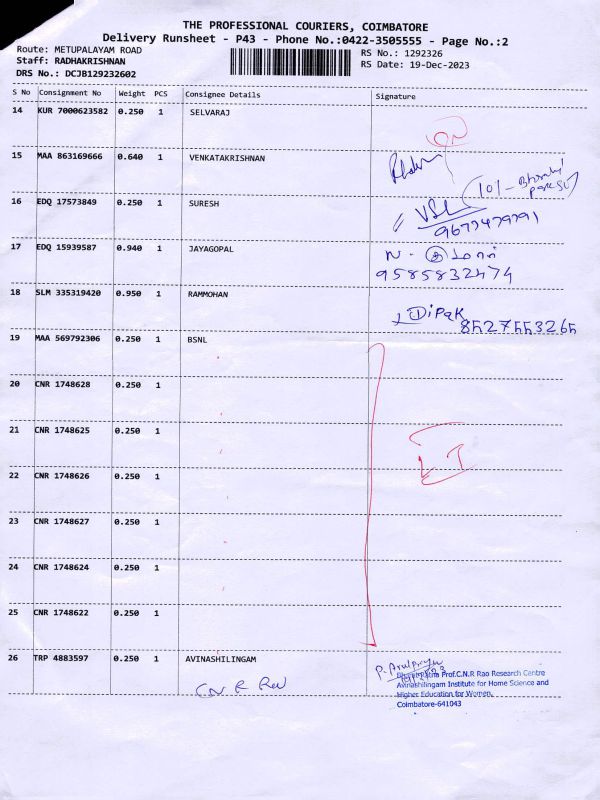 THE PROFESSIONAL COURIERS, COIMBATORE
Delivery Runsheet - P43 - Phone No.:0422-3505555 - Page No.:2
Route: METUPALAYAM ROAD
Staff: RADHAKRISHNAN
DRS No.: DCJB129232602
RS No.: 1292326
RS Date: 19-Dec-2023
S No Consignment No Weight PCS Consignee Details Signature
14 KUR 7000623582 0.250 1 SELVARAJ
15 MAA 863169666 0.640 1 VENKATAKRISHNAN
16 EDQ 17573849 0.250 1 SURESH
17 EDQ 15939587 0.940 1 JAYAGOPAL
9585832474
18 SLM 335319420 0.950 1 RAMMOHAN
Dipak
8527553265
19 MAA 569792306 0.250 1 BSNL
20 CNR 1748628 0.250 1
21 CNR 1748625 0.250 1
22 CNR 1748626 0.250 1
23 CNR 1748627 0.250 1
24 CNR 1748624 0.250 1
25 CNR 1748622 0.250 1
26 TRP 4883597 0.250 1 AVINASHILINGAM
C.N.R Rao
Prof.C.N.R Rao Research Centre
Avinashilingam Institute for Home Science and
Higher Education for Women,
Coimbatore-641043